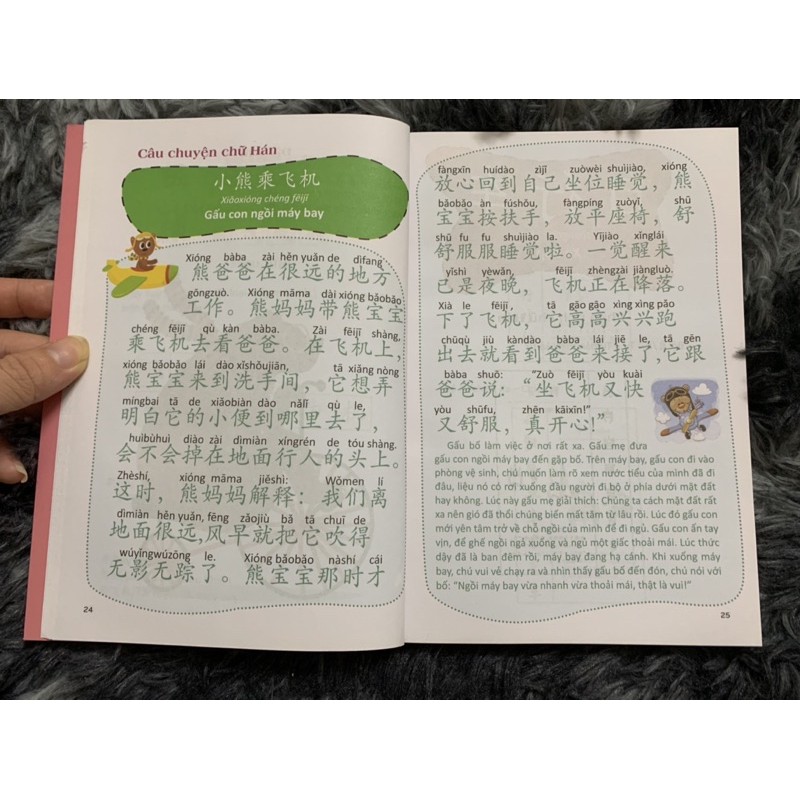 Câu chuyện chữ Hán
小熊乘飞机
Xiǎoxióng chéng fēijī
Gấu con ngồi máy bay
Xióng bàba zài hěn yuǎn de dìfang
熊爸爸在很远的地方
gōngzuò. Xióng māma dài xióng bǎobǎo
工作。熊妈妈带熊宝宝
chéng fēijī qù kàn bàba. Zài fēijī shàng,
乘飞机去看爸爸。在飞机上,
xióng bǎobǎo lái dào xǐshǒujiān, tā xiǎng nòng
熊宝宝来到洗手间,它想弄
míngbai tā de xiǎobiàn dào nǎlǐ qù le,
明白它的小便到哪里去了,
huìbùhuì diào zài dìmiàn xíngrén de tóu shàng.
会不会掉在地面行人的头上。
Zhèshí, xióng māma jiěshì: Wǒmen lí
这时,熊妈妈解释:我们离
dìmiàn hěn yuǎn, fēng zǎojiù bǎ tā chuī de
地面很远,风早就把它吹得
wúyǐngwúzōng le. Xióng bǎobǎo nàshí cái
无影无踪了。熊宝宝那时才
24
fàngxīn huídào zìjǐ zuòwèi shuìjiào, xióng
放心回到自己坐位睡觉,熊
bǎobǎo àn fúshǒu, fàngpíng zuòyǐ, shū
宝宝按扶手,放平座椅,舒
shū fu fu shuìjiào la. Yījiào xǐnglái
舒服服睡觉啦。一觉醒来
yǐshì yèwǎn, fēijī zhèngzài jiàngluò.
已是夜晚,飞机正在降落。
Xià le fēijī, tā gāo gāo xìng xìng pǎo
下了飞机,它高高兴兴跑
chūqù jiù kàndào bàba lái jiē le, tā gēn
出去就看到爸爸来接了,它跟
bàba shuō: "Zuò fēijī yòu kuài
爸爸说:“坐飞机又快
yòu shūfu, zhēn kāixīn!"
又舒服,真开心!”
Gấu bố làm việc ở nơi rất xa. Gấu mẹ đưa
gấu con ngồi máy bay đến gặp bố. Trên máy bay, gấu con đi vào
phòng vệ sinh, chú muốn làm rõ xem nước tiểu của mình đã đi
đâu, liệu nó có rơi xuống đầu người đi bộ ở phía dưới mặt đất
hay không. Lúc này gấu mẹ giải thích: Chúng ta cách mặt đất rất
xa nên gió đã thổi chúng biến mất tăm từ lâu rồi. Lúc đó gấu con
mới yên tâm trở về chỗ ngồi của mình để đi ngủ. Gấu con ấn tay
vịn, để ghế ngồi ngả xuống và ngủ một giấc thoải mái. Lúc thức
dậy đã là ban đêm rồi, máy bay đang hạ cánh. Khi xuống máy
bay, chú vui vẻ chạy ra và nhìn thấy gấu bố đến đón, chú nói với
bố: "Ngồi máy bay vừa nhanh vừa thoải mái, thật là vui!"
25